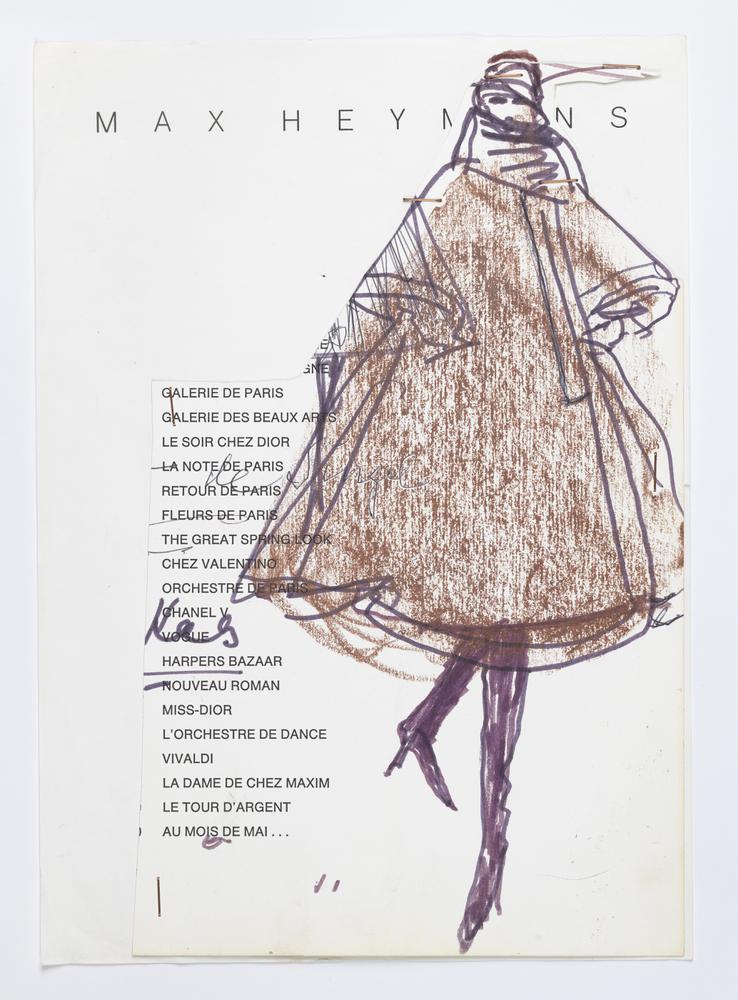 MAX HEYM NS
GNE
GALERIE DE PARIS
GALERIE DES BEAUX ARTS
LE SOIR CHEZ DIOR
LA NOTE DE PARIS
RETOUR DE PARIS
FLEURS DE PARIS
THE GREAT SPRING LOOK
CHEZ VALENTINO
ORCHESTRE DE PARIS
CHANEL V
VOGUE
HARPERS BAZAAR
NOUVEAU ROMAN
MISS-DIOR
L'ORCHESTRE DE DANCE
VIVALDI
LA DAME DE CHEZ MAXIM
LE TOUR D'ARGENT
AU MOIS DE MAI . . .